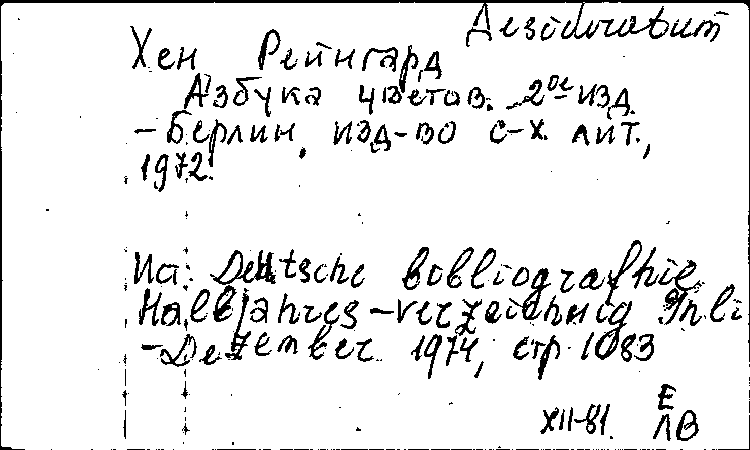 Хен Рейнгард
Азбука цветов. 2ое изд.
- Берлин, изд-во с-х. лит.,
1972.
Ист: Deutsche bibliografhie
Halbjahres-verzeichnis Juli
- Dezember 1974, стр. 1083
XII-81. Е
ЛВ